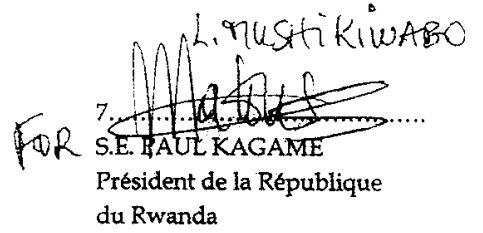 L. MUSHIKIWABO
7....................................
FOR S.E. PAUL KAGAME
Président de la République
du Rwanda